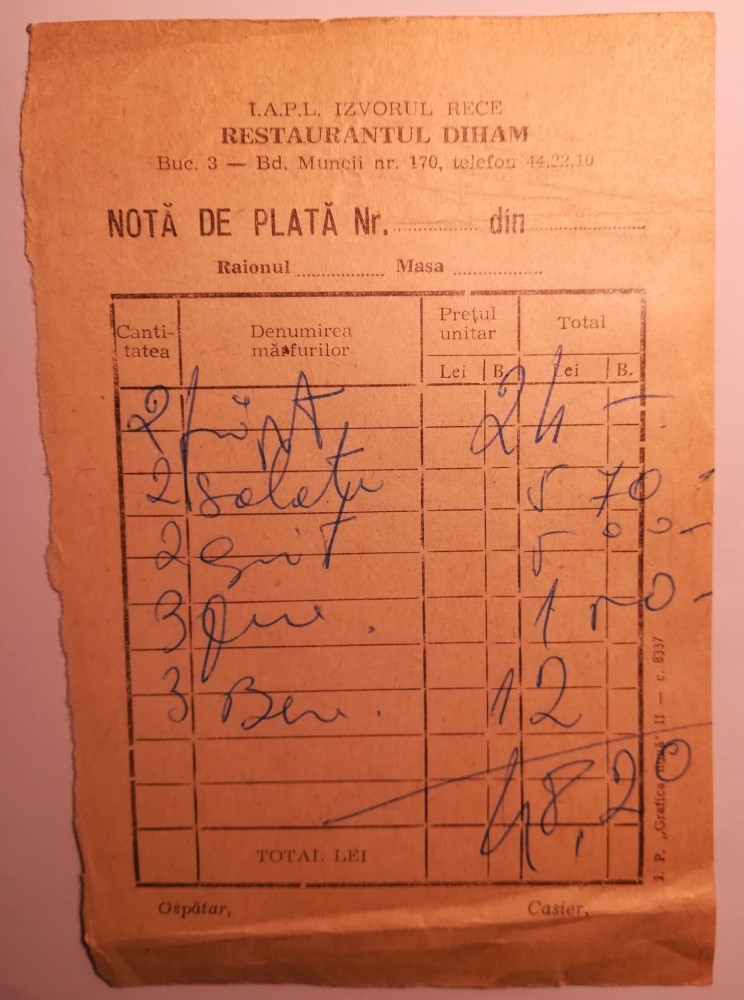 I.A.P.L. IZVORUL RECE
RESTAURANTUL DIHAM
Buc. 3 — Bd. Muncii nr. 170, telefon 44.22.10
NOTĂ DE PLATĂ Nr. din
Raionul Masa
Cantitatea Denumirea mărfurilor Prețul unitar Total
Lei B. Lei B.
2 24 —
2 salate 5 70 -
2 5 00 -
3 1 50 -
3 Bere. 12
48,20
TOTAL LEI
Ospătar, Casier,
I. P. „Grafica nouă" II — c. 8337